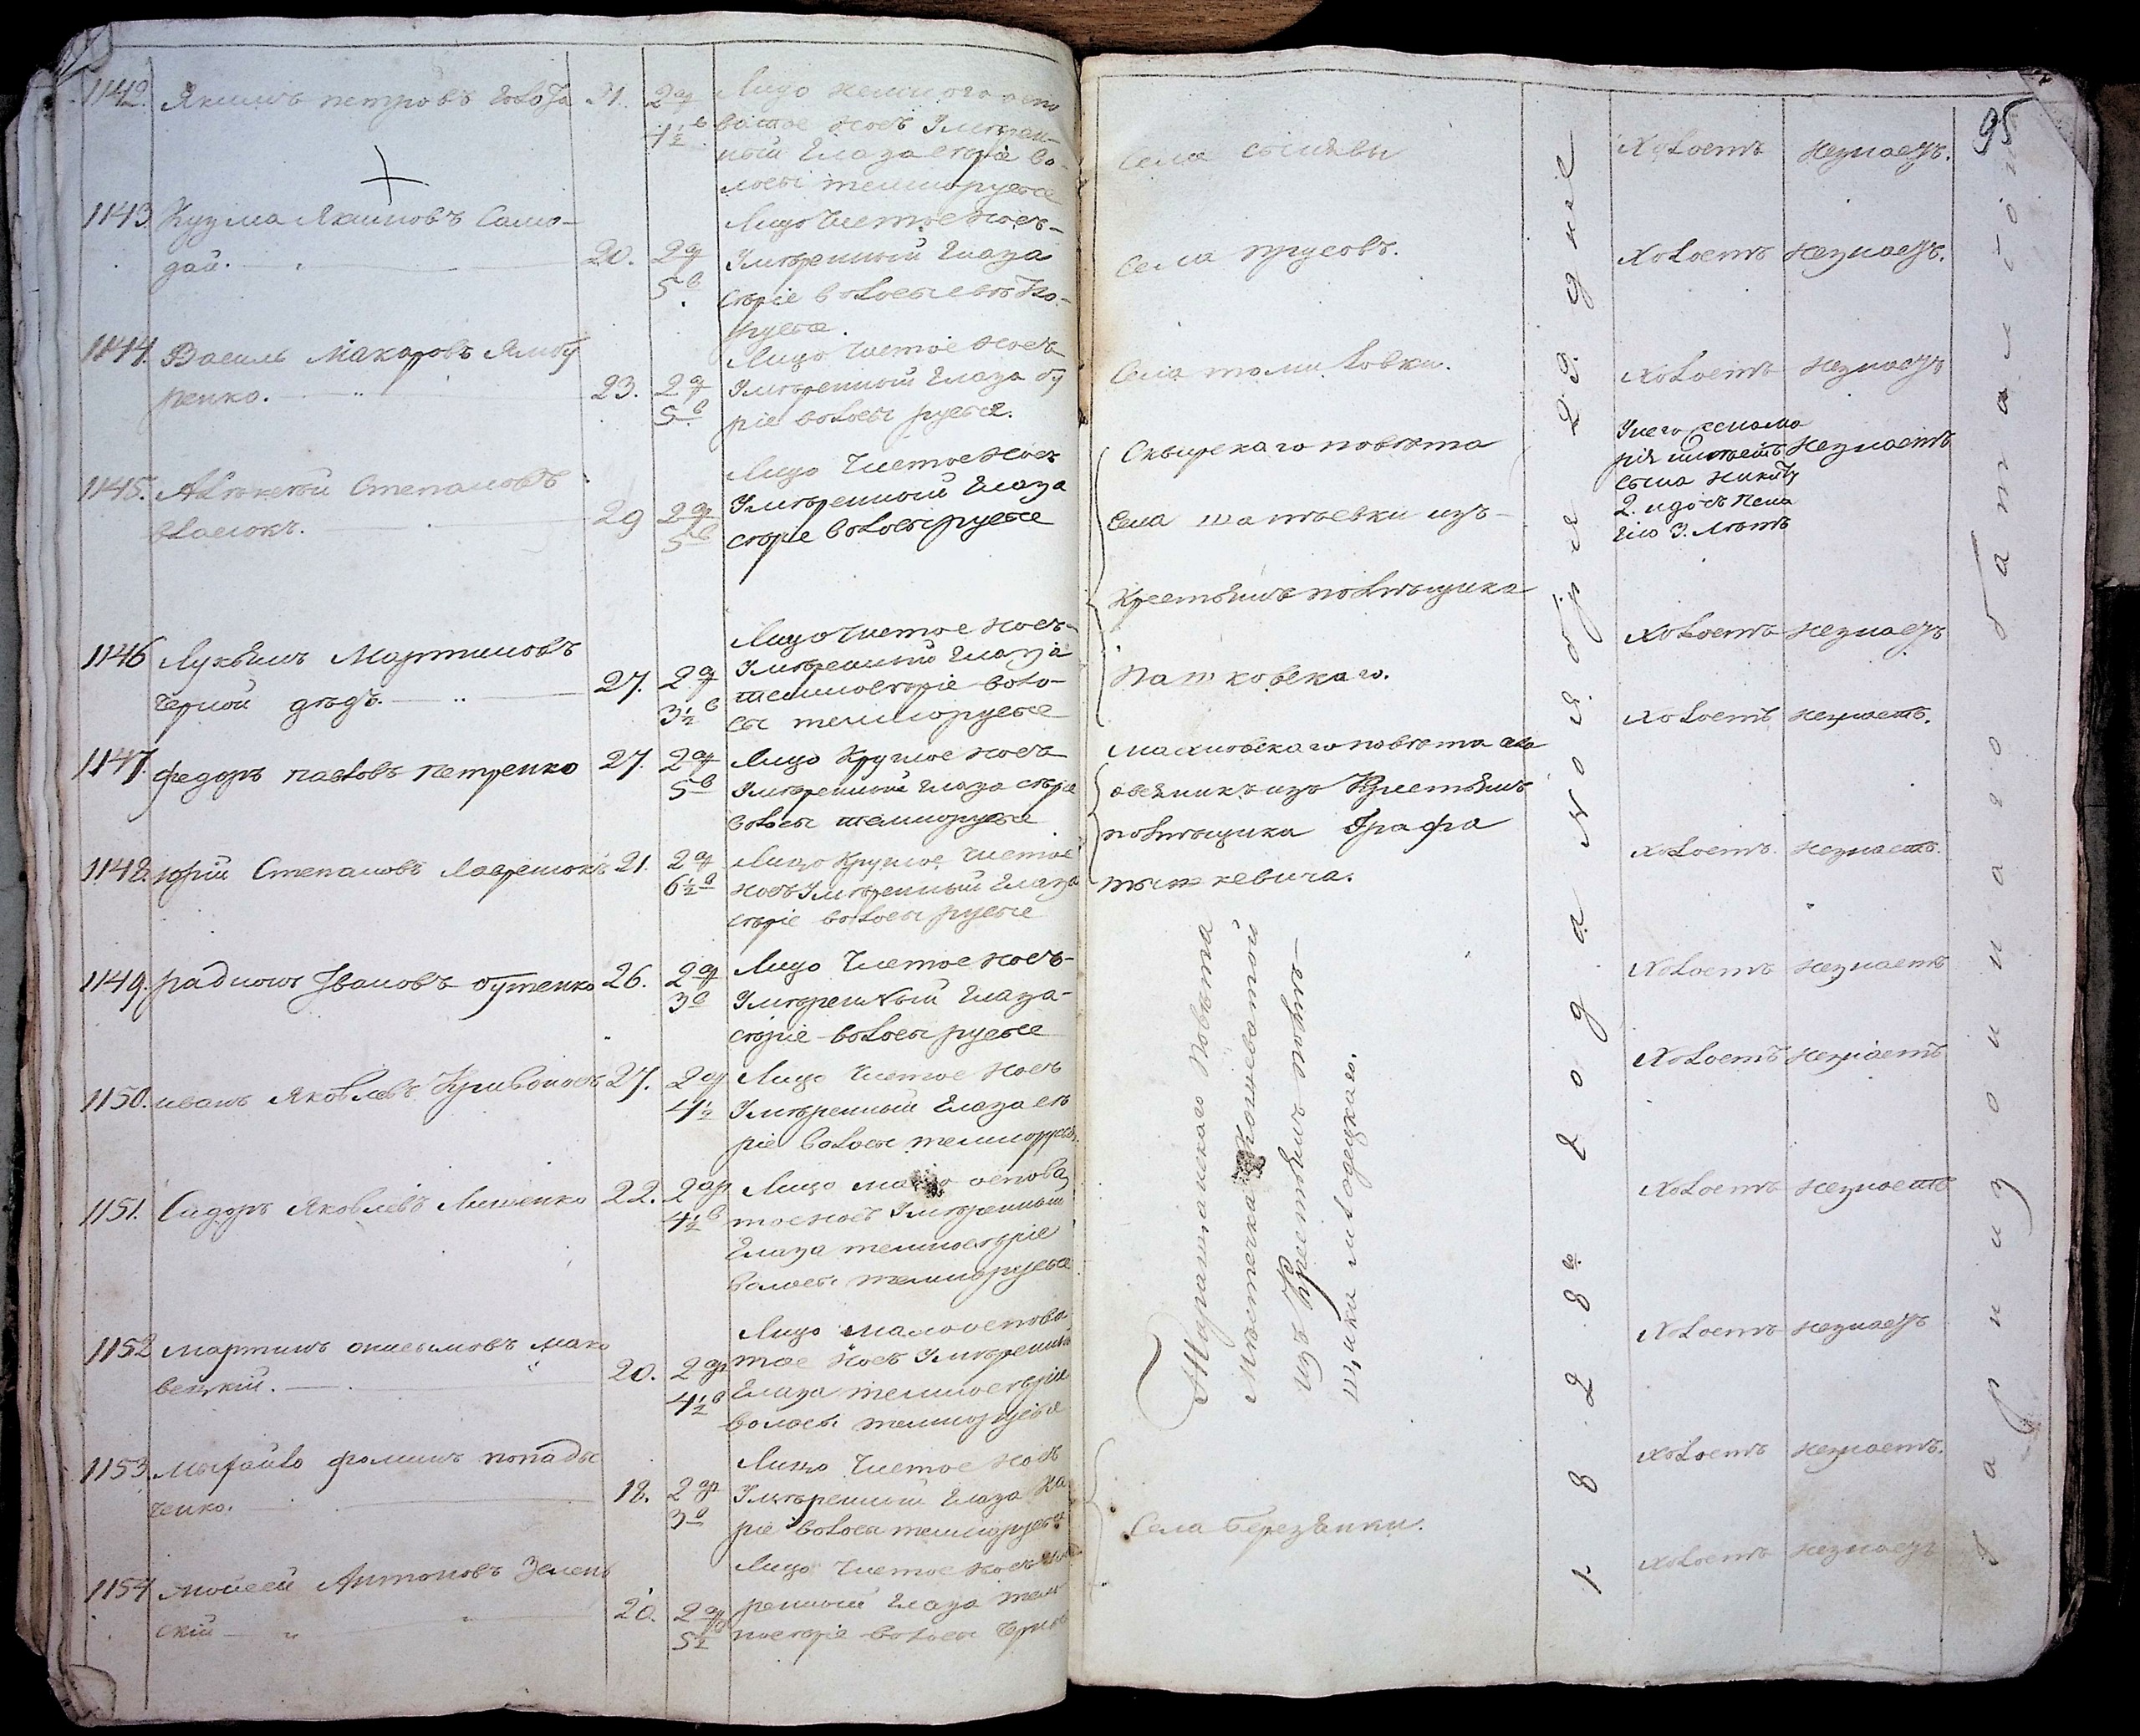 1142. Якимъ петровъ голота 31. 2 ар
4½ в
Лицо немного оспо
ватое носъ Умѣрен-
ный Глаза сѣріе во-
лосы темнорусые
1143. Кузма Якимовъ Само-
дай. 20. 2 ар
5 в
Лицо Чистое носъ-
Умѣренный Глаза
сѣріе волосы свѣтло-
русые.
1144. Василь Макаровъ Ямбу
ренко. 23. 2 ар
5 в
Лицо Чистое носъ
Умѣренный Глаза
ріе волосы русые.
1145. Алѣксѣй Степановъ
власюкъ. 29 2 ар
5 в
Лицо Чистое носъ
Умѣренный Глаза
сѣріе волосы русые
1146 Лукьянъ Мартиновъ
Черной дѣдъ. 27. 2 ар
3½ в
Лицо Чистое носъ-
Умѣренный Глаза
темносѣріе воло-
сы темнорусые
1147. федоръ павловъ петренко 27. 2 ар
5 в
Лицо Круглое носъ
Умѣренный Глаза сѣріе
волосы темнорусые
1148. юрій Степановъ Лавренюкъ 21. 2 ар
6½ в
Лицо Круглое Чистое
носъ Умѣренный Глаза
сѣріе волосы русые
1149. радионъ Ивановъ бутенко 26. 2 ар
3 в
Лицо Чистое носъ-
Умѣренный Глаза-
сѣріе волосы русые
1150. иванъ Яковлевъ Кривоносъ 27. 2 ар
4½
Лицо Чистое носъ
Умѣренный Глаза сѣ
ріе волосы темнорусые
1151. Сидоръ Яковлевъ Лищенко 22. 2 ар
4½ в
Лицо мало оспова
тое носъ Умѣренный
Глаза темносѣріе
волосы темнорусые
1152 мартинъ онисимовъ мако
вецкій. 20. 2 ар
4½ в
Лицо малооспова
тое носъ Умѣренный
Глаза темносѣріе
волосы темнорусые
1153. Михайло фоминъ попадю
ченко. 18. 2 ар
3 в
Лицо Чистое носъ
Умѣренный Глаза ка
ріе волосы темнорусые
1154 мойсей Антоновъ Зелень
скій 20. 2 ар
5½
Лицо Чистое носъ
ренный Глаза тем
носѣріе волосы Черные
95
Села сынявы
Села трусовъ.
Села томиловки.
Сквирскаго повѣта
Села шапѣевки изъ
Крестьянъ помѣщика
Патковскаго.
Махновскаго повѣта
овсяникъ изъ Крестьянъ
помѣщика Графа
тышкевича.
Таращанскаго Повѣта
Мѣстечка Коншеватой
изъ Крестьянъ помѣ-
щика млодецкаго.
Села березянки.
1828го года Ноября 29 дни
Холостъ незнаетъ.
Холостъ незнаетъ.
Холостъ незнаетъ
У него жена ма
рія имѣетъ незнаетъ
сына никиту
2. и дочь
3. Лѣтъ
Холостъ незнаетъ
Холостъ незнаетъ.
Холостъ. незнаетъ.
Холостъ незнаетъ
Холостъ незнаетъ
Холостъ незнаетъ
Холостъ незнаетъ
Холостъ незнаетъ.
Холостъ незнаетъ